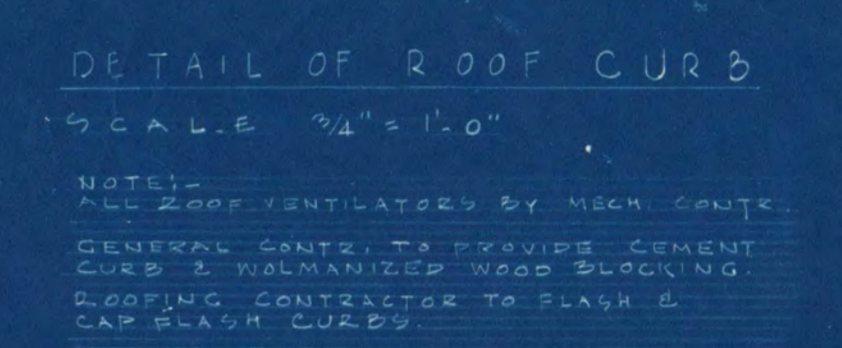 DETAIL OF ROOF CURB
SCALE 3/4" = 1'-0"
NOTE:-
ALL ROOF VENTILATORS BY MECH. CONTR.
GENERAL CONTR. TO PROVIDE CEMENT
CURB & WOLMANIZED WOOD BLOCKING.
ROOFING CONTRACTOR TO FLASH &
CAP FLASH CURBS.